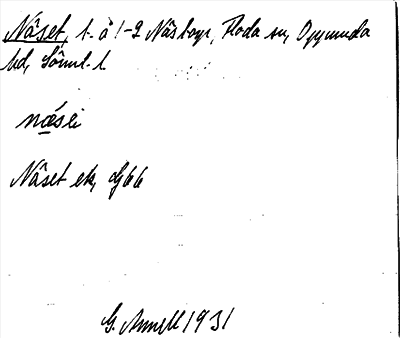 Näset, t. å 1-2 Näsbyn, Floda sn, Oppunda
hd, Söml. l.
næsε
Näset ek, Gbb
G. Annell 1931